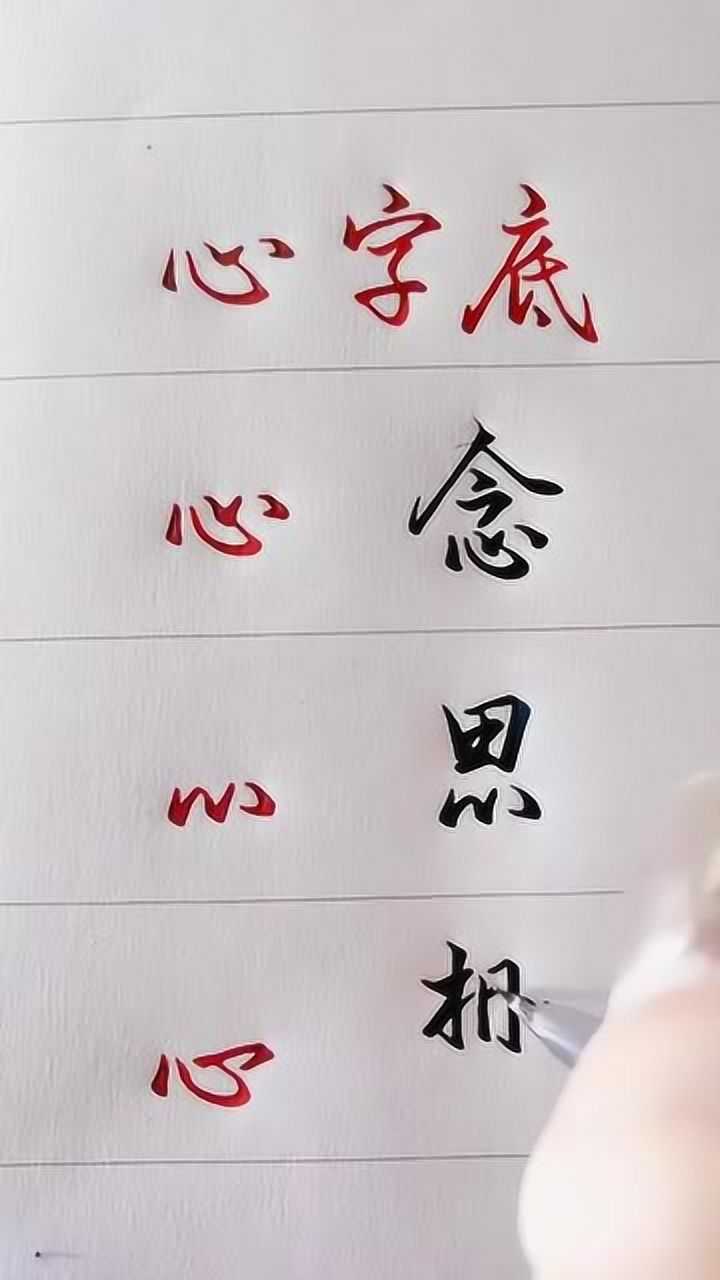 心字底
心 念
心 思
心 相